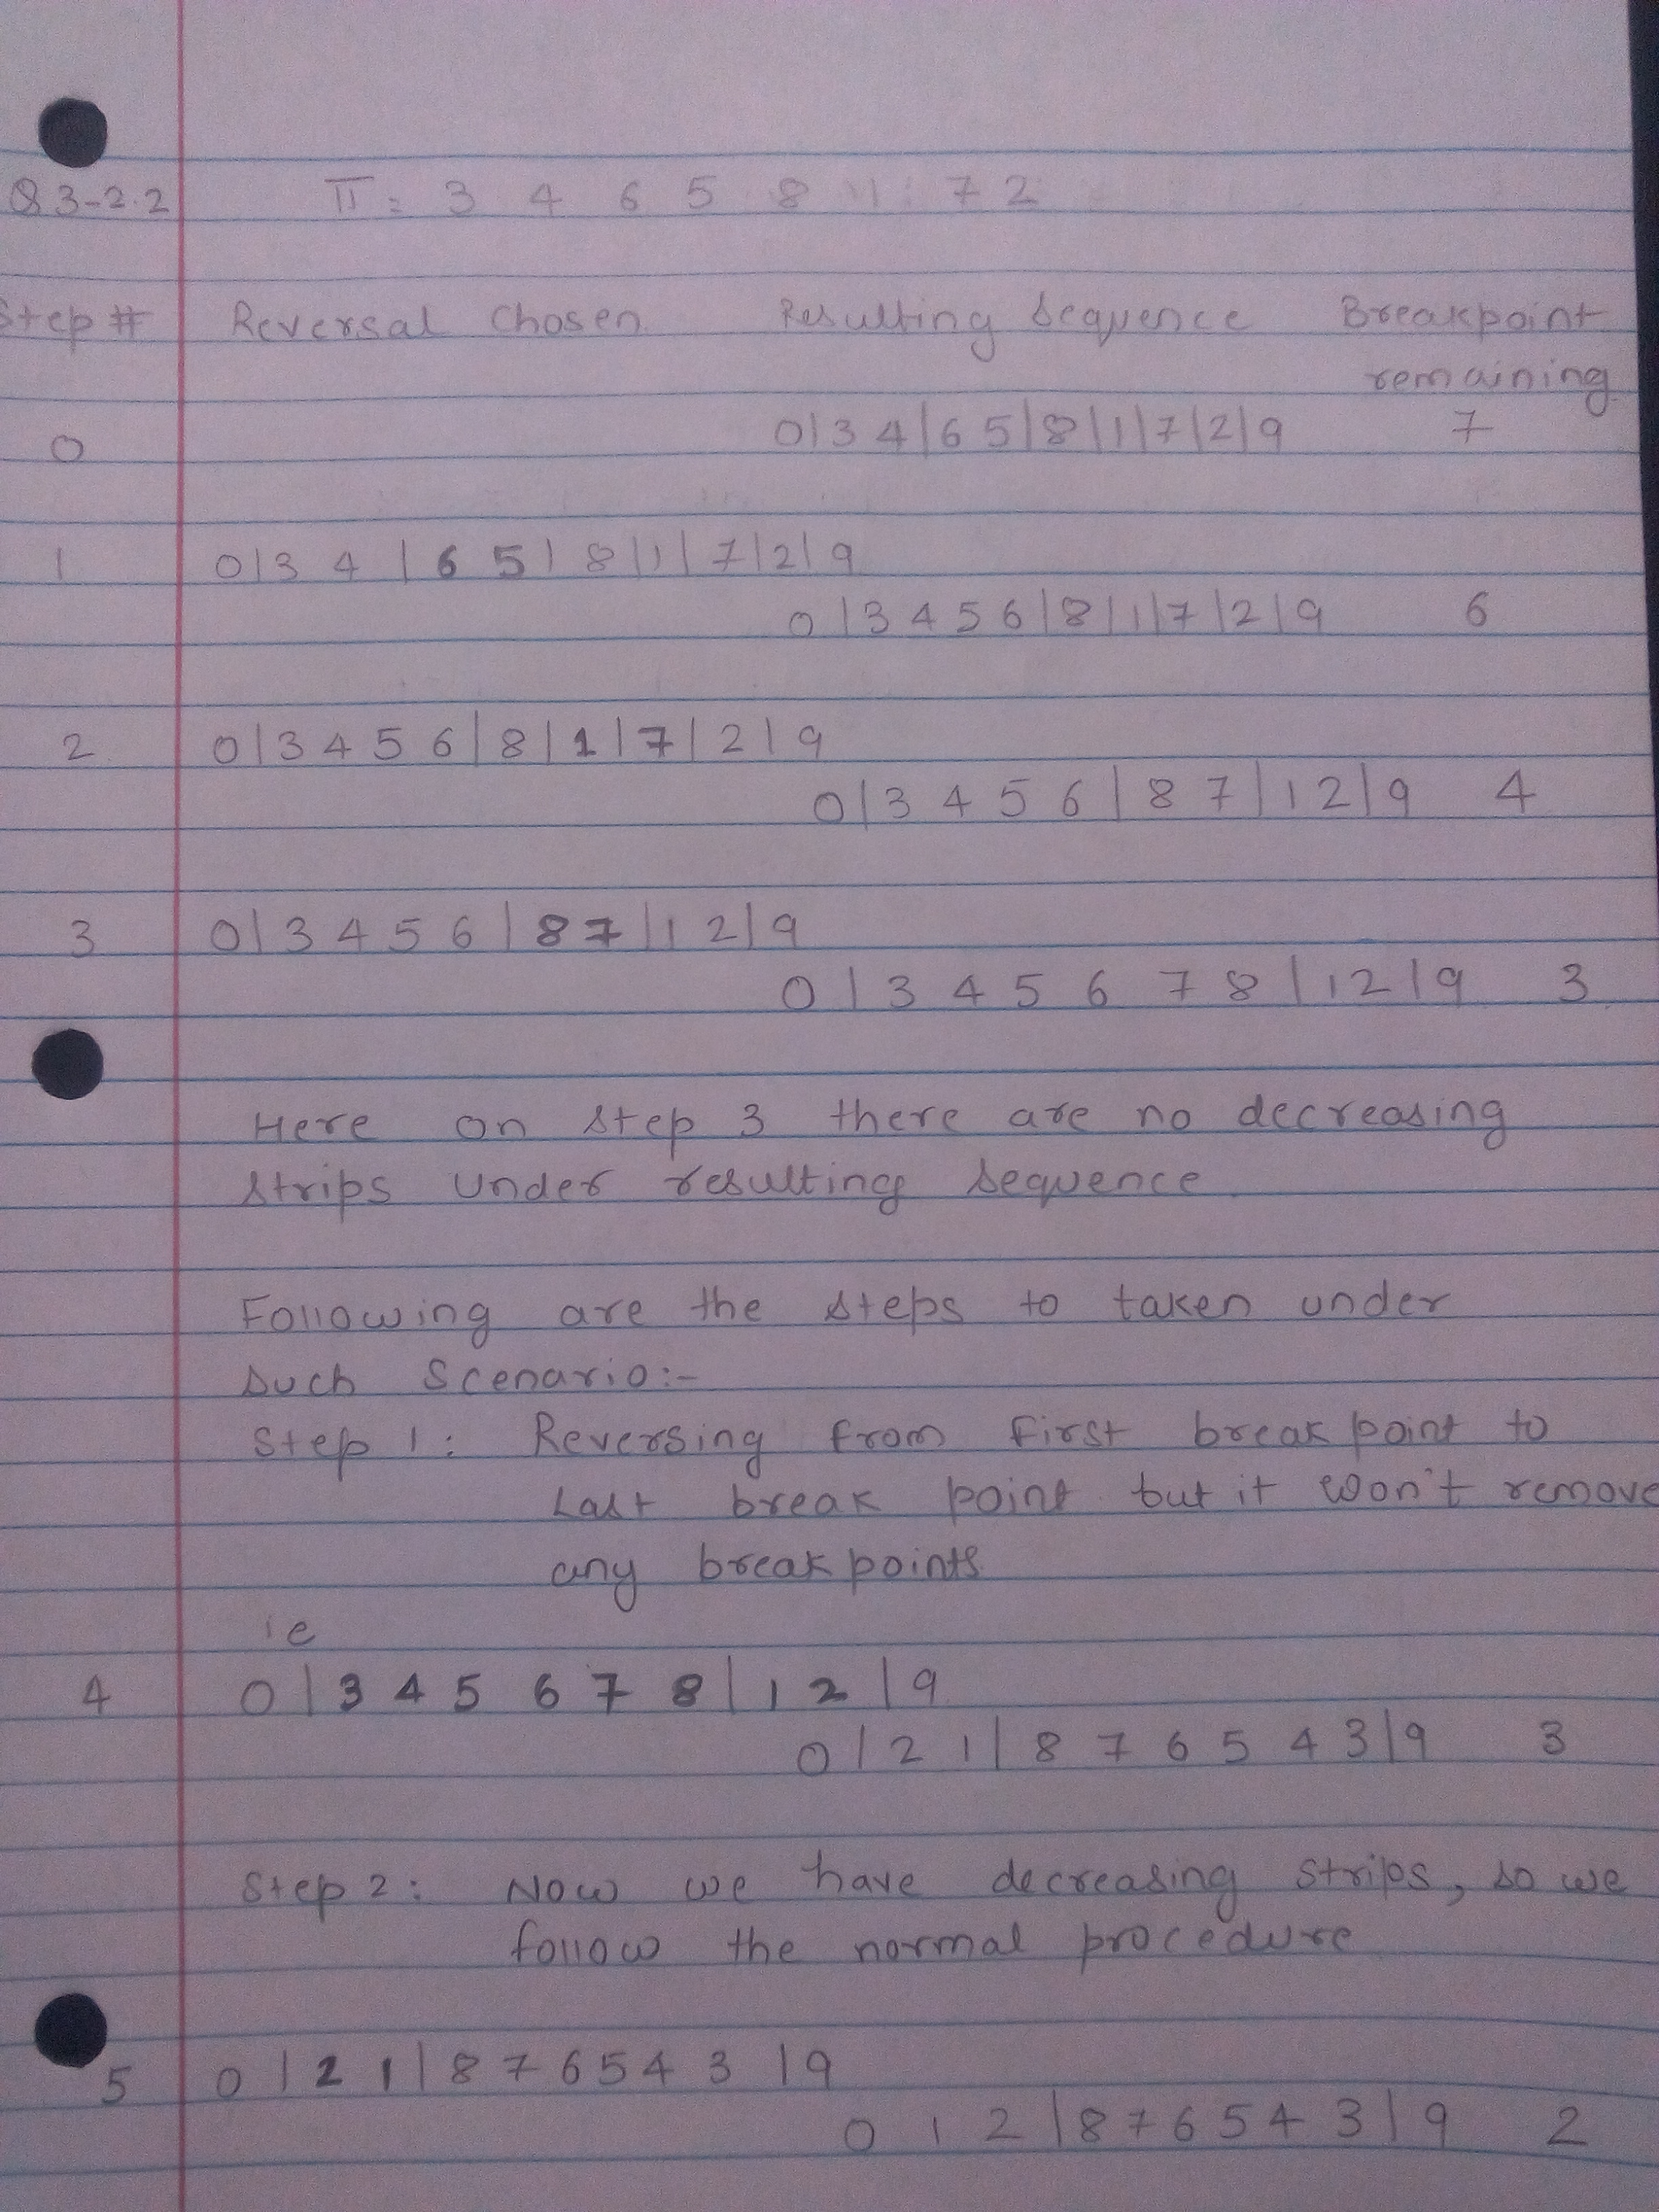 Q 3-2.2 π = 3 4 6 5 8 1 7 2
Step # Reversal Chosen Resulting Sequence Breakpoint
remaining
0 0|3 4|6 5|8|1|7|2|9 7
1 0|3 4|6 5|8|1|7|2|9
0|3 4 5 6|8|1|7|2|9 6
2 0|3 4 5 6|8|1|7|2|9
0|3 4 5 6|8 7|1 2|9 4
3 0|3 4 5 6|8 7|1 2|9
0|3 4 5 6 7 8|1 2|9 3
Here on step 3 there are no decreasing
strips under resulting sequence
Following are the steps to taken under
such Scenario:-
Step 1: Reversing from first break point to
Last break point but it won't remove
any break points
ie
4 0|3 4 5 6 7 8|1 2|9
0|2 1|8 7 6 5 4 3|9 3
Step 2: Now we have decreasing strips, so we
follow the normal procedure
5 0|2 1|8 7 6 5 4 3|9
0 1 2|8 7 6 5 4 3|9 2